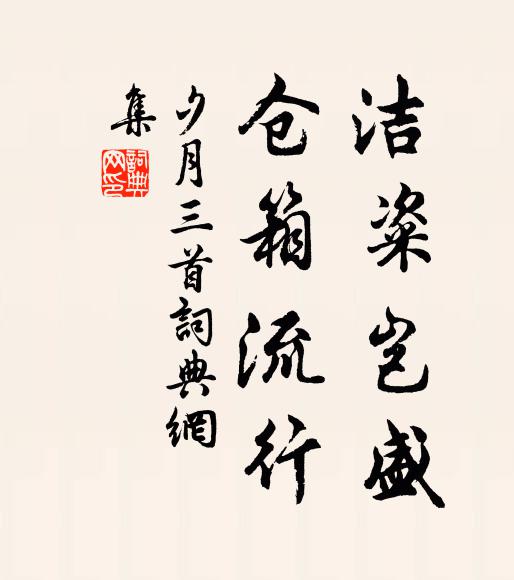 洁粢岂盛
仓箱流行
夕月三首詞典網
集
詞典
网印